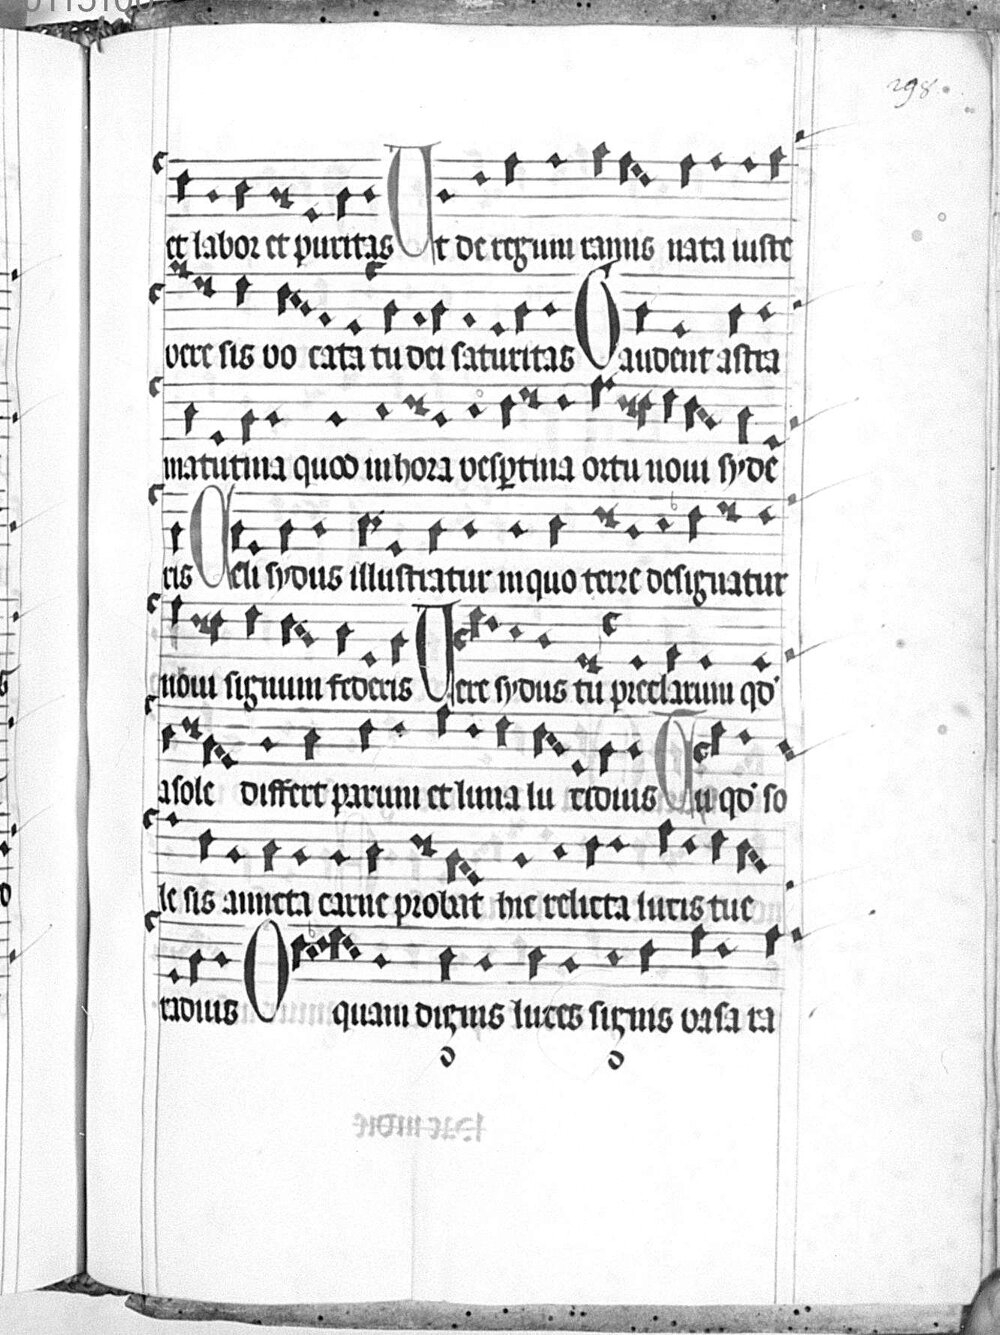 298.
et labor et puritas Ut de regum ramis nata iuste
vere sis vo cata tu dei saturitas Gaudent astra
matutina quod in hora vesptina ortu noui syde
ris Celi sydus illustratur in quo terre designatur
noui signum federis Vere sydus tu preclarum qd
a sole differt parum et luna lu cidius Cui qd so
le sis amicta carne probat hic relicta lucis tue
radius O quam dignis luces signis vasa ra